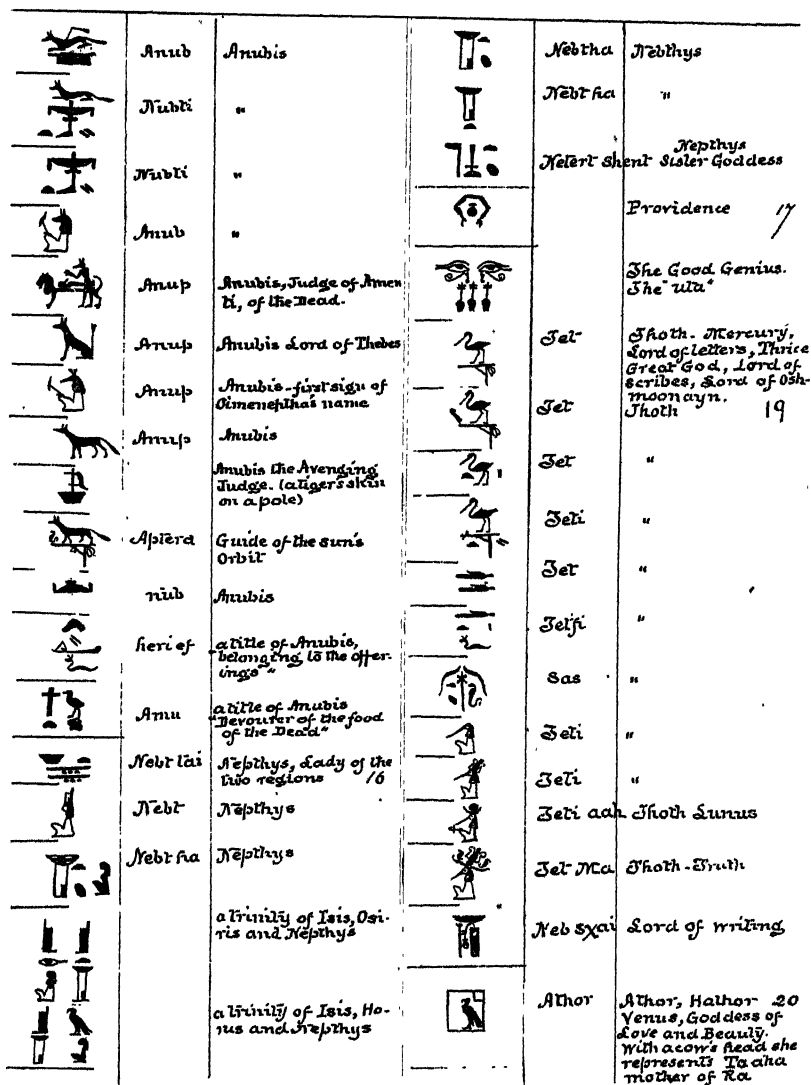 Anub Anubis
Nubti "
Nubti "
Anub "
Anup Anubis, Judge of Amen
ti, of the Dead.
Anup Anubis Lord of Thebes
Anup Anubis-first sign of
Oimenepthas name
Anup Anubis
Anubis the Avenging
Judge. (a tiger's skin
on a pole)
Apterd Guide of the sun's
Orbit
nub Anubis
heri ef a title of Anubis,
"belonging to the offer-
ings"
Amu a title of Anubis
"Devourer of the food
of the Dead"
Nebt tai Nepthys, Lady of the
two regions 16
Nebt Nepthys
Nebt ha Nepthys
a trinity of Isis, Osi-
ris and Nepthys
a trinity of Isis, Ho-
rus and Nepthys
Nebtha Nebthys
Nebt ha "
Nepthys
Netert Shent Sister Goddess
Providence 17
The Good Genius.
The "uta"
Tet Thoth - Mercury,
Lord of letters, Thrice
Great God, Lord of
scribes, Lord of Osh-
moonayn.
Tet Thoth 19
Tet "
Teti "
Tet "
Tetfi "
Sas "
Teti "
Teti "
Teti aah Thoth Lunus
Tet Ma Thoth-Truth
Neb sχai Lord of writing
Athor Athor, Hathor 20
Venus, Goddess of
Love and Beauty.
With a cow's head she
represents Ta aha
mother of Ra